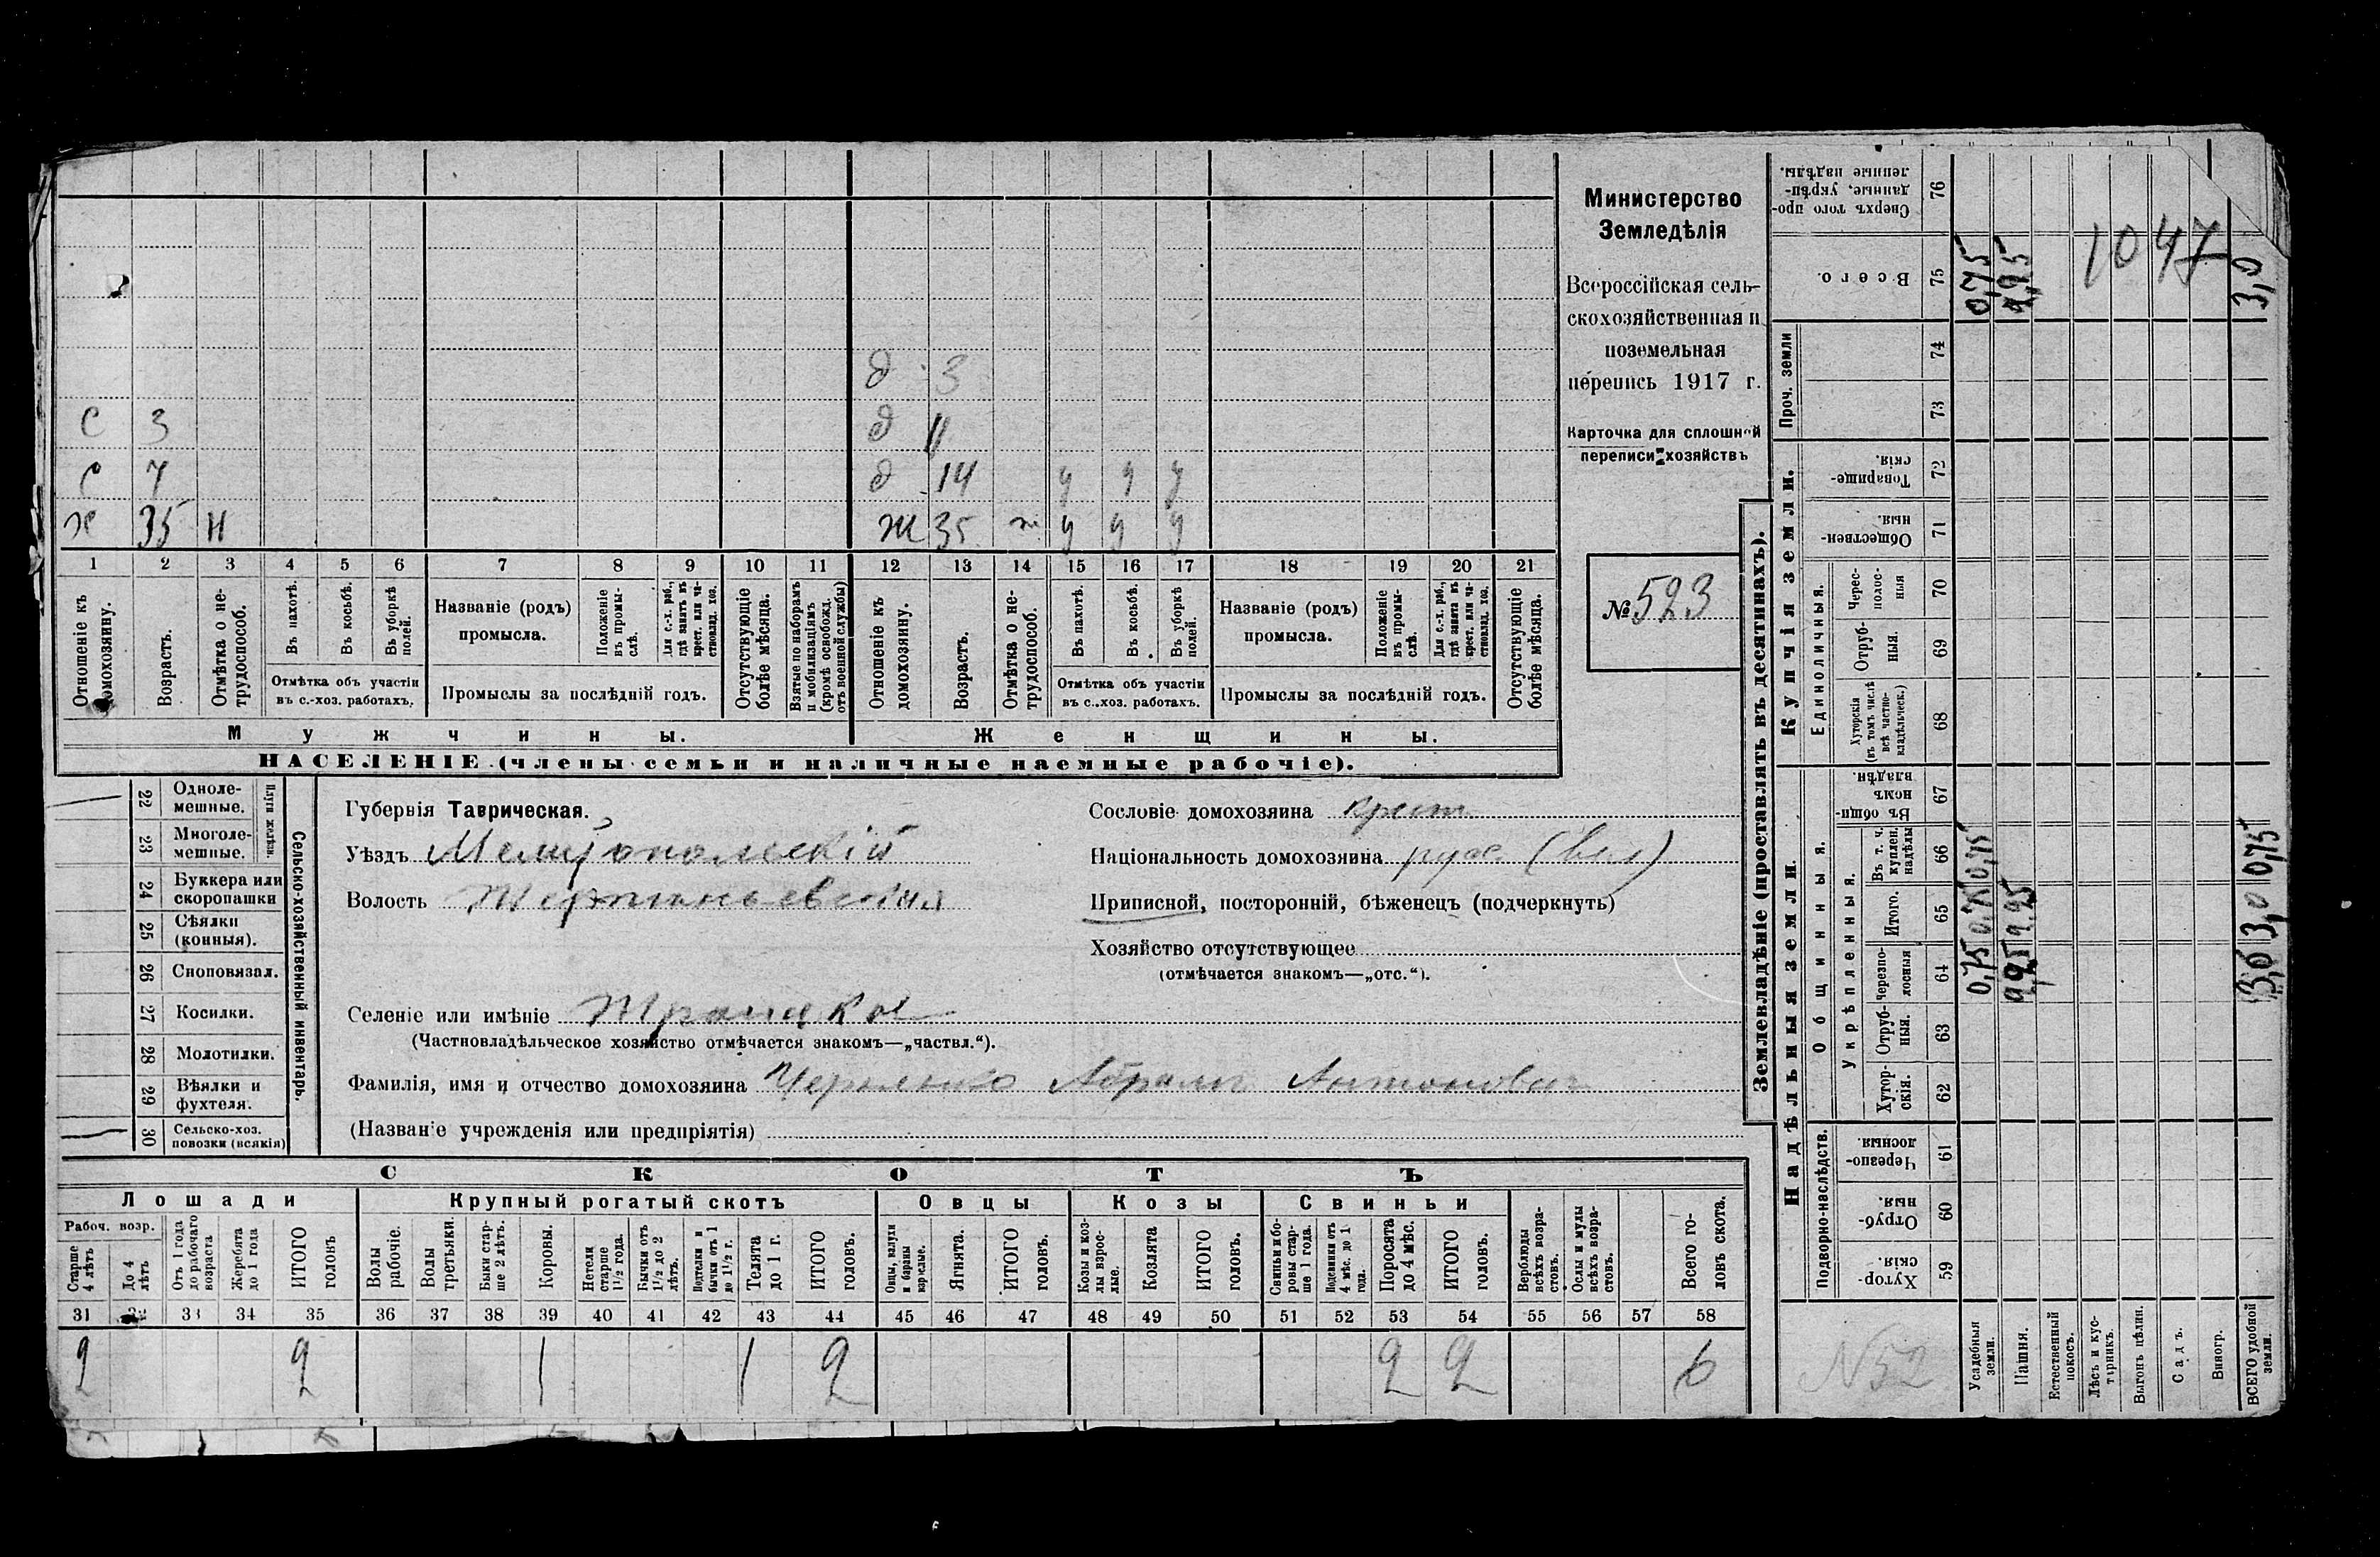 Министерство
Земледѣлія
Всероссійская сель-
скохозяйственная и
поземельная
перепись 1917 г.
Карточка для сплошной
переписи хозяйствъ
№ 523
д 3
С 3 д 11
С 7 д 14 у у у
х 35 н Ж 35 ж у у у
1 2 3 4 5 6 7 8 9 10 11 12 13 14 15 16 17 18 19 20 21
Отношеніе къ домохозяину.
Возрастъ.
Отмѣтка о не-трудоспособ.
Въ пахотѣ.
Въ косьбѣ.
Въ уборкѣ полей.
Отмѣтка объ участіи
въ с.-хоз. работахъ.
Названіе (родъ)
промысла.
Положеніе въ промы-слѣ.
Для с.-х. раб., гдѣ занятъ въ крест. или ча-стновлад. хоз.
Промыслы за послѣдній годъ.
Отсутствующіе болѣе мѣсяца.
Взятые по наборамъ и мобилизаціямъ (кромѣ освобожд. отъ военной службы)
Отношеніе къ домохозяину.
Возрастъ.
Отмѣтка о не-трудоспособ.
Въ пахотѣ.
Въ косьбѣ.
Въ уборкѣ полей.
Отмѣтка объ участіи
въ с.-хоз. работахъ.
Названіе (родъ)
промысла.
Положеніе въ промы-слѣ.
Для с.-х. раб., гдѣ занята въ крест. или ча-стновлад. хоз.
Промыслы за послѣдній годъ.
Отсутствующіе болѣе мѣсяца.
Мужчины. Женщины.
НАСЕЛЕНІЕ (члены семьи и наличные наемные рабочіе).
Сельско-хозяйственный инвентарь.
Плуги желѣзн.
22 Одноле-мешные.
23 Многоле-мешные.
24 Буккера или скоропашки
25 Сѣялки (конныя).
26 Сноповязал.
27 Косилки.
28 Молотилки.
29 Вѣялки и фухтеля.
30 Сельско-хоз. повозки (всякія)
Губернія Таврическая.
Уѣздъ Мелитопольскій
Волость
Селеніе или имѣніе Троицкое
(Частновладѣльческое хозяйство отмѣчается знакомъ—„частвл.“).
Фамилія, имя и отчество домохозяина Абрамъ Антоновъ
(Названіе учрежденія или предпріятія)
Сословіе домохозяина крест.
Національность домохозяина русс. (вел)
Приписной, посторонній, бѣженецъ (подчеркнуть)
Хозяйство отсутствующее
(отмѣчается знакомъ—„отс.“).
СКОТЪ
Лошади Крупный рогатый скотъ Овцы Козы Свиньи
Рабоч. возр.
Старше 4 лѣтъ
До 4 лѣтъ
Отъ 1 года до рабочаго возраста
Жеребята до 1 года
ИТОГО головъ
Волы рабочіе.
Волы третьяки.
Быки стар-ше 2 лѣтъ.
Коровы.
Нетели старше 1½ года.
Бычки отъ 1½ до 2 лѣтъ.
Подтелки и бычки отъ 1 до 1½ г.
Телята до 1 г.
ИТОГО головъ.
Овцы, валухи и бараны взрослые.
Ягнята.
ИТОГО головъ.
Козы и коз-лы взрос-лые.
Козлята
ИТОГО головъ.
Свиньи и бо-ровы стар-ше 1 года.
Подсвинки отъ 4 мѣс. до 1 года.
Поросята до 4 мѣс.
ИТОГО головъ.
Верблюды всѣхъ возра-стовъ.
Ослы и мулы всѣхъ возра-стовъ.
Всего го-ловъ скота.
31 32 33 34 35 36 37 38 39 40 41 42 43 44 45 46 47 48 49 50 51 52 53 54 55 56 57 58
2 2 1 1 2 2 2 6
Землевладѣніе (проставлять въ десятинахъ).
Надѣльныя земли. Купчія земли. Проч. земли
Подворно-наслѣдств. Общинныя. Единоличныя.
Укрѣпленныя.
Хутор-скія. 59
Отруб-ныя. 60
Черезпо-лосныя. 61
Хутор-скія. 62
Отруб-ныя. 63
Черезпо-лосныя 64
Итого. 65
Въ т. ч. куплен. надѣлы 66
Въ общи-номъ владѣн. 67
Хуторскія (въ томъ числѣ всѣ частно-владѣльческ.) 68
Отруб-ныя. 69
Черес-полос-ныя 70
Обществен-ныя. 71
Товарище-скія. 72
73
74
Всего. 75
Сверхъ того про-данные, укрѣп-ленные надѣлы. 76
Усадебныя земли. 0,75 0,75 0,75 0,75
Пашня.
Естественный покосъ.
Лѣсъ и кус-тарникъ.
Выгонъ цѣлин.
Садъ.
Виногр.
ВСЕГО удобной земли. 3,0 3,0 0,75 3,0
1047
N 52